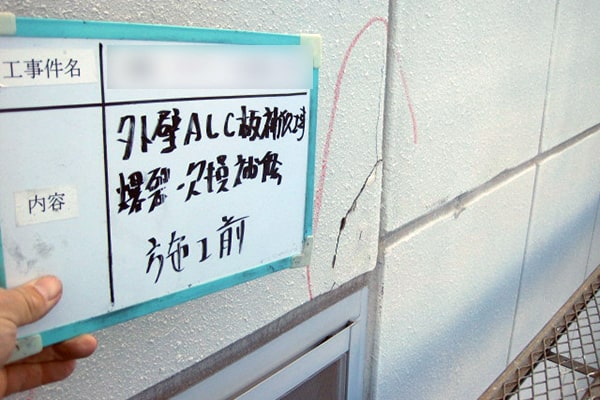 工事件名
外壁ALC板補修工事
内容
爆裂・欠損補修
施工前